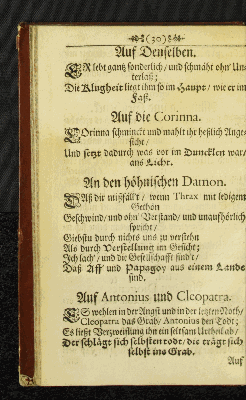 (30)
Auf Denselben.
ER lebt gantz sonderlich / und schmäht ohn' Un-
terlaß;
Die Klugheit liegt ihm so im Haupt / wie er im
Faß.
Auf die Corinna.
COrinna schminckt und mahlt ihr heßlich Ange-
sicht /
Und setzt dadurch was vor im Duncklen war /
ans Licht.
An den höhnischen Damon.
DAß dir mißfällt / wenn Thrax mit ledigem
Gethön
Geschwind / und ohn' Verstand / und unaufhörlich
spricht /
Giebstu durch nichts uns zu verstehn
Als durch Vorstellung im Gesicht;
Ich lach' / und die Gesellschafft find't /
Daß Aff' und Papagoy aus einem Lande
sind.
Auf Antonius und Cleopatra.
ES wehlen in der Angst und in der letzten Noth /
Cleopatra das Grab / Antonius den Todt;
Es ließt Verzweiflung ihn ein seltsam Urtheil ab /
Der schlägt sich selbsten todt / die trägt sich
selbst ins Grab.
Auf